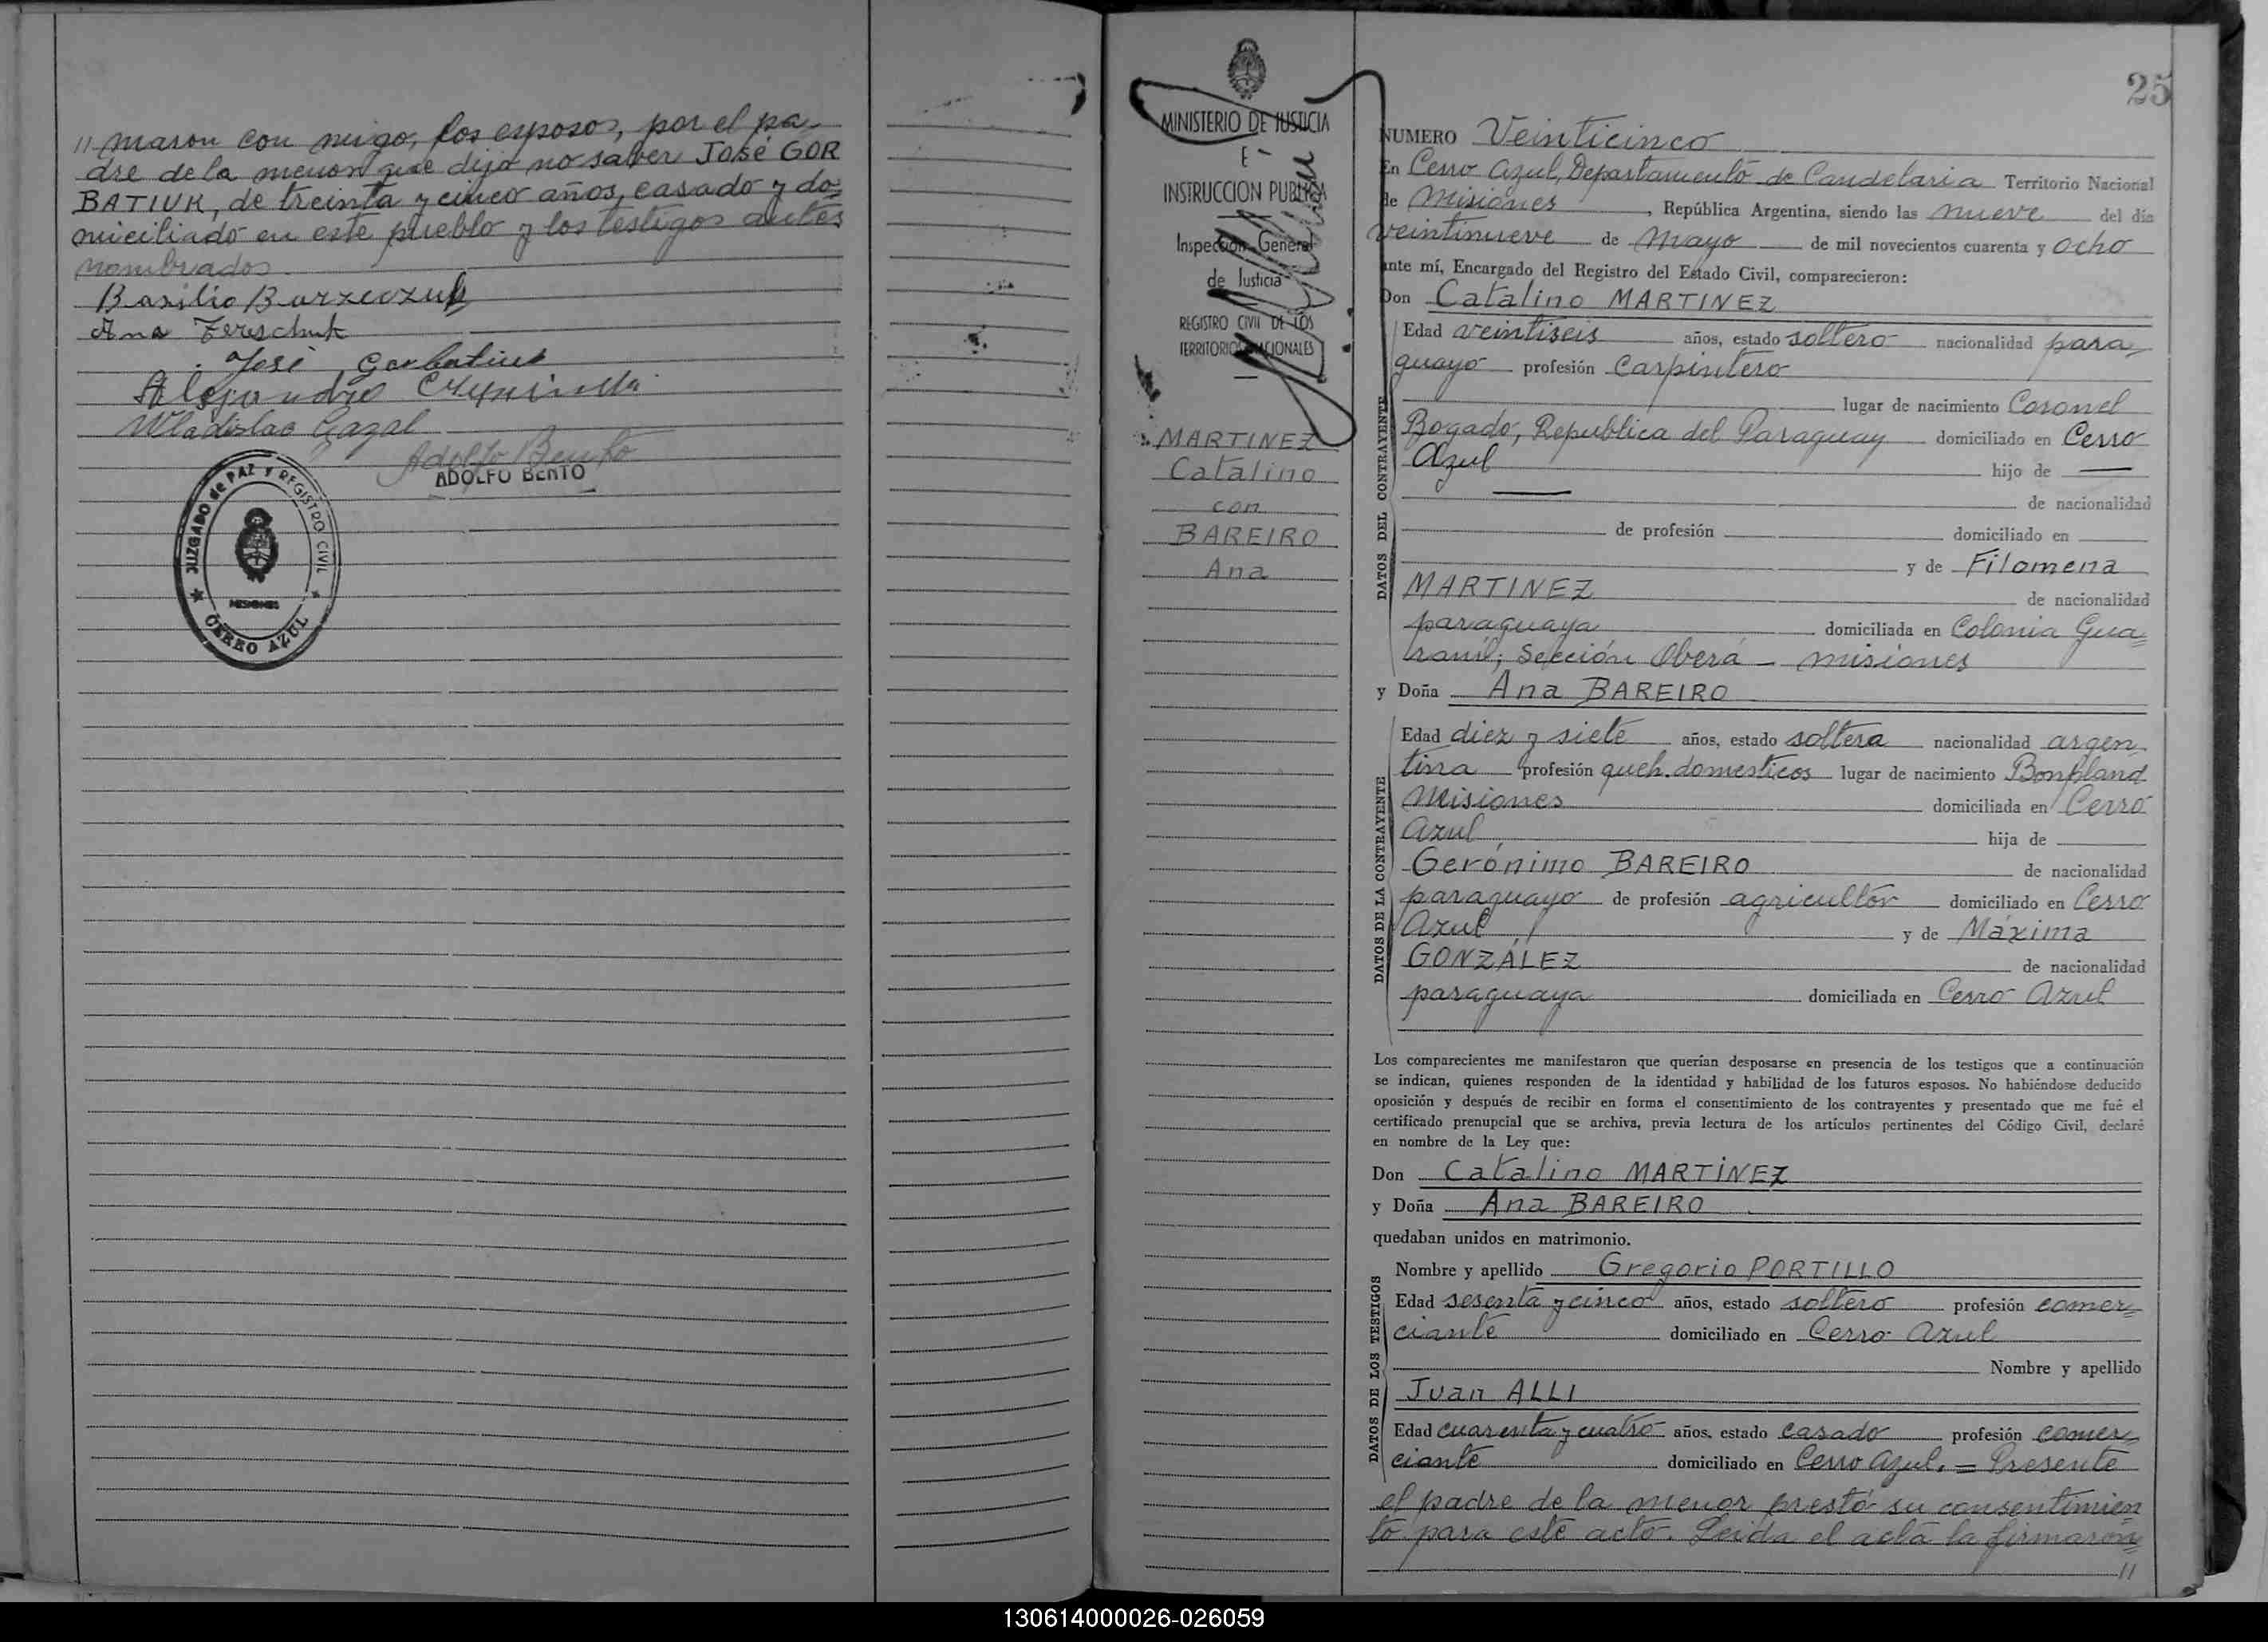 // maron con migo, los esposos, por el pa-
dre de la menor que dijo no saber José GOR
BATIUK, de treinta y cinco años, casado y do-
miciliado en este pueblo y los testigos antes
nombrados.
Basilio
Ana Tereschuk
José Gorbatiuk
Alejandro
Wladislao Gazal
Adolfo Bento
ADOLFO BENTO
JUZGADO de PAZ Y REGISTRO CIVIL
MISIONES
CERRO AZUL
MINISTERIO DE JUSTICIA
E
INSTRUCCION PUBLICA
Inspección General
de Justicia
REGISTRO CIVIL DE LOS
TERRITORIOS NACIONALES
MARTINEZ
Catalino
con
BAREIRO
Ana
25
NUMERO Veinticinco
En Cerro Azul, Departamento de Candelaria Territorio Nacional
de Misiones, República Argentina, siendo las nueve del día
veintinueve de Mayo de mil novecientos cuarenta y ocho
ante mí, Encargado del Registro del Estado Civil, comparecieron:
Don Catalino MARTINEZ
DATOS DEL CONTRAYENTE
Edad veintiseis años, estado soltero nacionalidad para-
guayo profesión Carpintero
lugar de nacimiento Coronel
Bogado, Republica del Paraguay domiciliado en Cerro
Azul hijo de —
— de nacionalidad
de profesión domiciliado en
y de Filomena
MARTINEZ de nacionalidad
paraguaya domiciliada en Colonia Gua=
raní; Sección Oberá - Misiones
y Doña Ana BAREIRO
DATOS DE LA CONTRAYENTE
Edad diez y siete años, estado soltera nacionalidad argen-
tina profesión queh. domesticos lugar de nacimiento Bonpland
Misiones domiciliada en Cerro
Azul hija de
Gerónimo BAREIRO de nacionalidad
paraguayo de profesión agricultor domiciliado en Cerro
Azul y de Máxima
GONZÁLEZ de nacionalidad
paraguaya domiciliada en Cerro Azul
Los comparecientes me manifestaron que querían desposarse en presencia de los testigos que a continuación
se indican, quienes responden de la identidad y habilidad de los futuros esposos. No habiéndose deducido
oposición y después de recibir en forma el consentimiento de los contrayentes y presentado que me fué el
certificado prenupcial que se archiva, previa lectura de los artículos pertinentes del Código Civil, declaré
en nombre de la Ley que:
Don Catalino MARTINEZ
y Doña Ana BAREIRO
quedaban unidos en matrimonio.
DATOS DE LOS TESTIGOS
Nombre y apellido Gregorio PORTILLO
Edad sesenta y cinco años, estado soltero profesión comer=
ciante domiciliado en Cerro Azul
Nombre y apellido
Juan ALLI
Edad cuarenta y cuatro años, estado casado profesión comer=
ciante domiciliado en Cerro Azul. = Presente
el padre de la menor prestó su consentimien
to para este acto. Leida el acta la firmaron
//
130614000026-026059